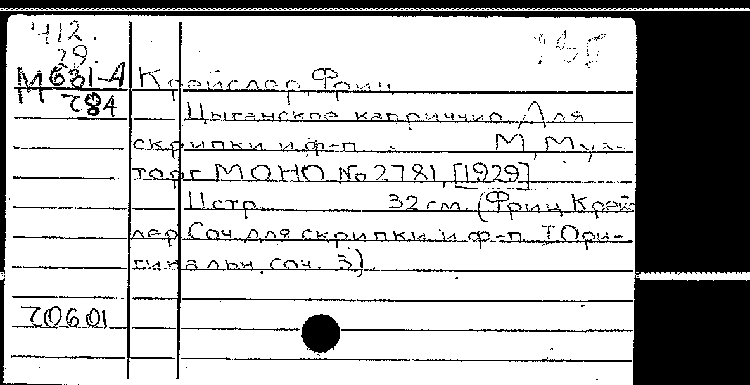 412.
29.
М631-4 Крейслер, Фриц
784 Цыганское каприччио Для
скрипки и ф-п. М, Муз-
торг МОНО № 2781, [1929]
11стр. 32 см. (Фриц Крейс
лер Соч. для скрипки и ф-п. I Ори-
гинальн. соч. 3)
70601